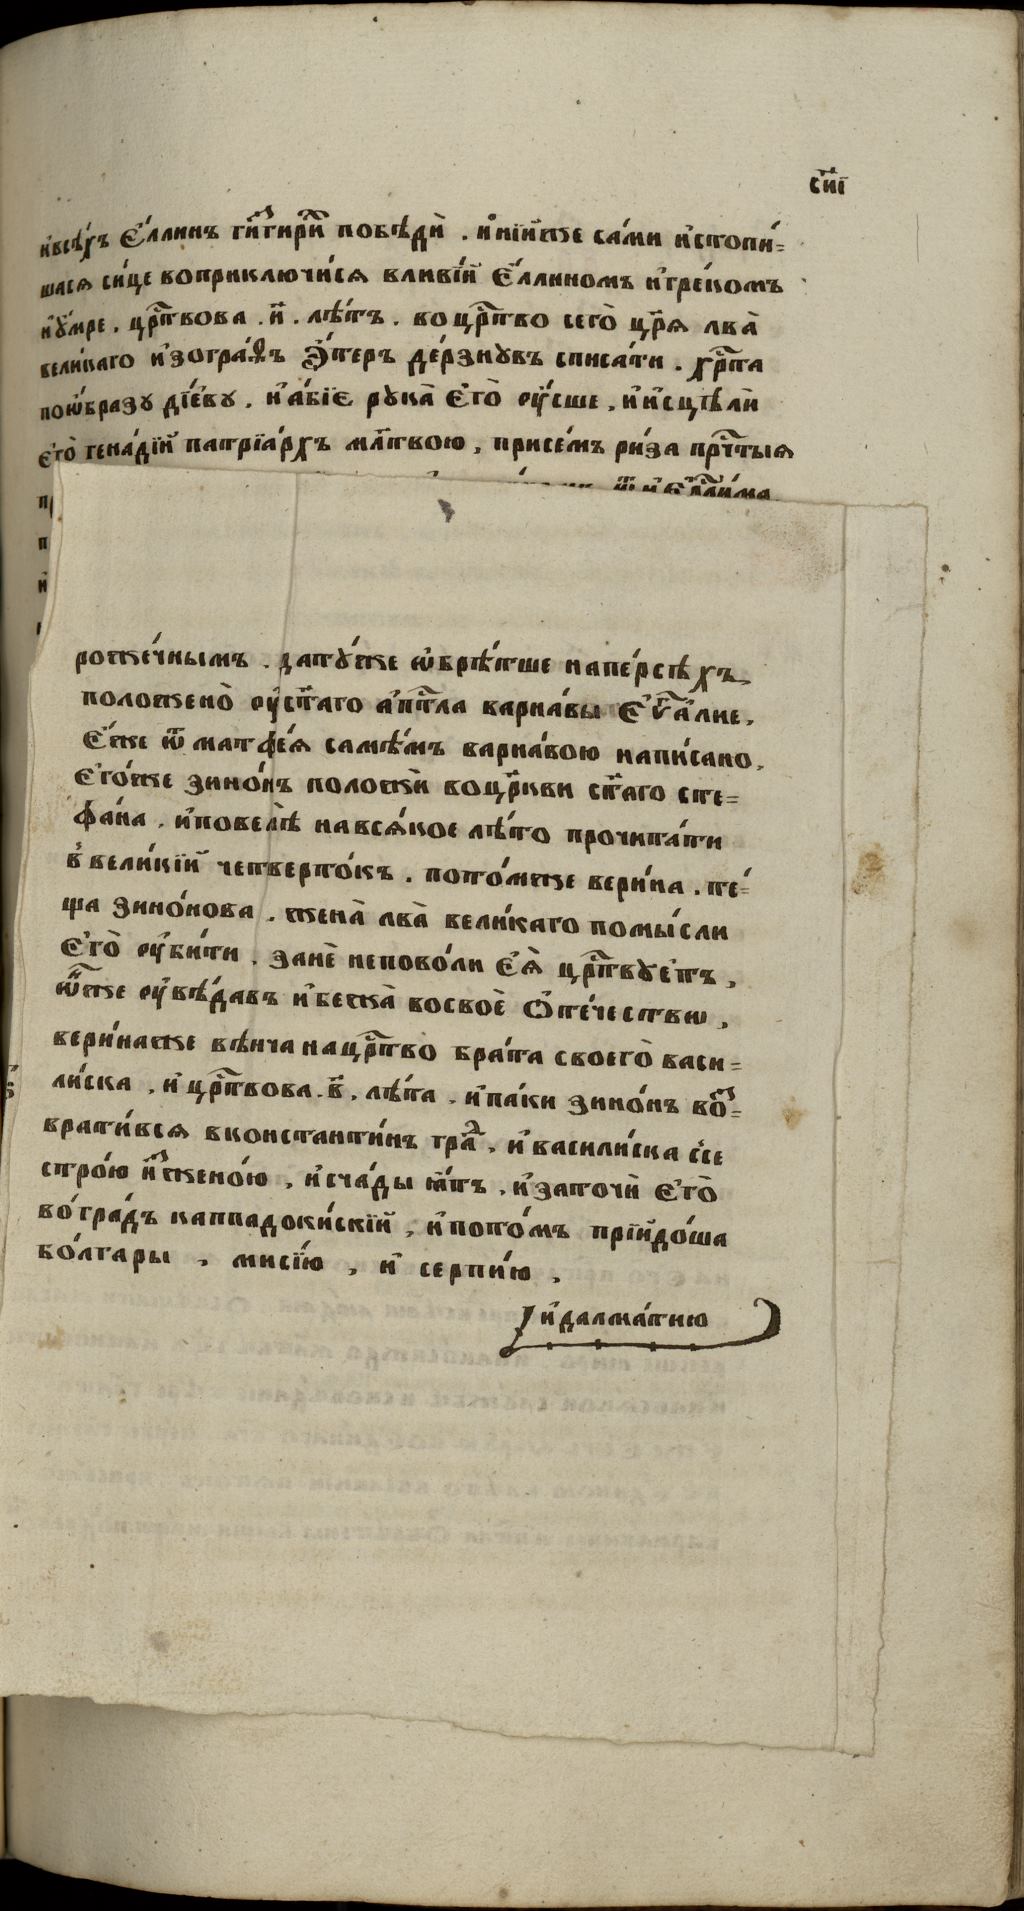 сн҃і
ивсѣ́хъ є҆́ллинъ гн҃гири̑и побѣдѝ . и҆нїи́же са́ми и҆стопи́=
шася си́це воприключи́ся вливі́й є҆́ллиномъ и҆гре́комъ
и҆ᲂу́мре . црⷭ҇твова . и҃ . лѣ́тъ . во црⷭ҇тво сего̀ цр҃я лва̀
вели́каго и҆зогра́ѳъ э҆́теръ де́рзнувъ списа́ти . хрⷭ҇та
поѡ҆́бразу ді́еву . и҆а́бїє рука̀ є҆го̀ ᲂу҆́сше , и҆и҆сцѣлѝ
є҆го̀ гена́дїй патрїа́рхъ мл҃твою , присе́мъ ри́за прчⷭ҇тыя
рожéчнымъ . затᲂу́же ѡ҆брѣ́тше напе́рсѣхъ
положено̀ ᲂу҆ст҃аго а҆пⷭ҇тла варна́вы є҆ѵⷢ҇а́лие ,
є҆́же ѿ матѳе́я самѣ́мъ варна́вою напи́сано ,
є҆го́же зино́нъ положѝ воцр҃кви ст҃аго сте=
фа́на . и҆повелѣ̀ нався́кое лѣ́то прочита́ти
в҆ вели́кїй четверто́къ . пото́мже вери́на . те́=
ща зино́нова . жена̀ лва̀ вели́каго помы́сли
є҆го̀ ᲂу҆би́ти , занѐ неповоли є҆я̀ црⷭ҇твᲂует̾ъ ,
ѻ҆́нже ᲂу҆вѣ́давъ и҆бежа̀ восвоѐ ѻ҆те́чествѡ ,
вери́наже вѣнча нацрⷭ҇тво бра́та своего̀ васи=
ли́ска , и҆ црⷭ҇твова . в҃ , лѣ́та , и҆па́ки зино́нъ воз=
врати́вся вконстанти́нъ гра́д , и҆васили́ска се
стро́ю и҆жено́ю , и҆сча́ды ꙗ҆́тъ , и҆заточѝ є҆го̀
во́гра́дъ каппадоки́скїй , и҆пото́мъ прїидо́ша
бо́лгары , мисі́ю , и҆ серпи́ю ,
и҆далма́тию